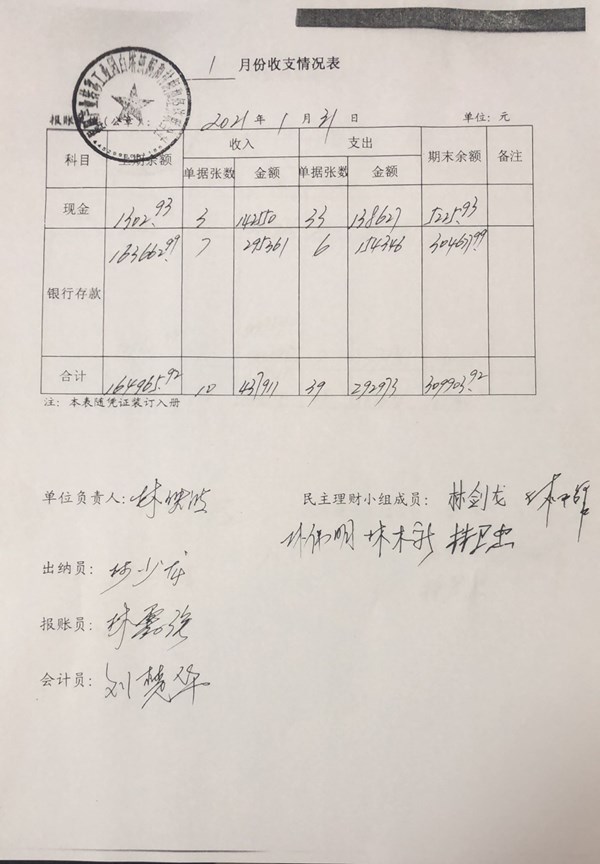 1 月份收支情况表
报账 2021 年 1 月 31 日 单位：元
科目 上期余额 收入 支出 期末余额 备注
单据张数 金额 单据张数 金额
现金 1302.93 3 142550 33 138627 5225.93
163662.99 7 295361 6 154346 304677.99
银行存款
合计 164965.92 10 437911 39 292973 309903.92
注：本表随凭证装订入册
单位负责人： 民主理财小组成员：林剑龙
林木新 林卫忠
出纳员：林少龙
报账员：
会计员：刘慧华